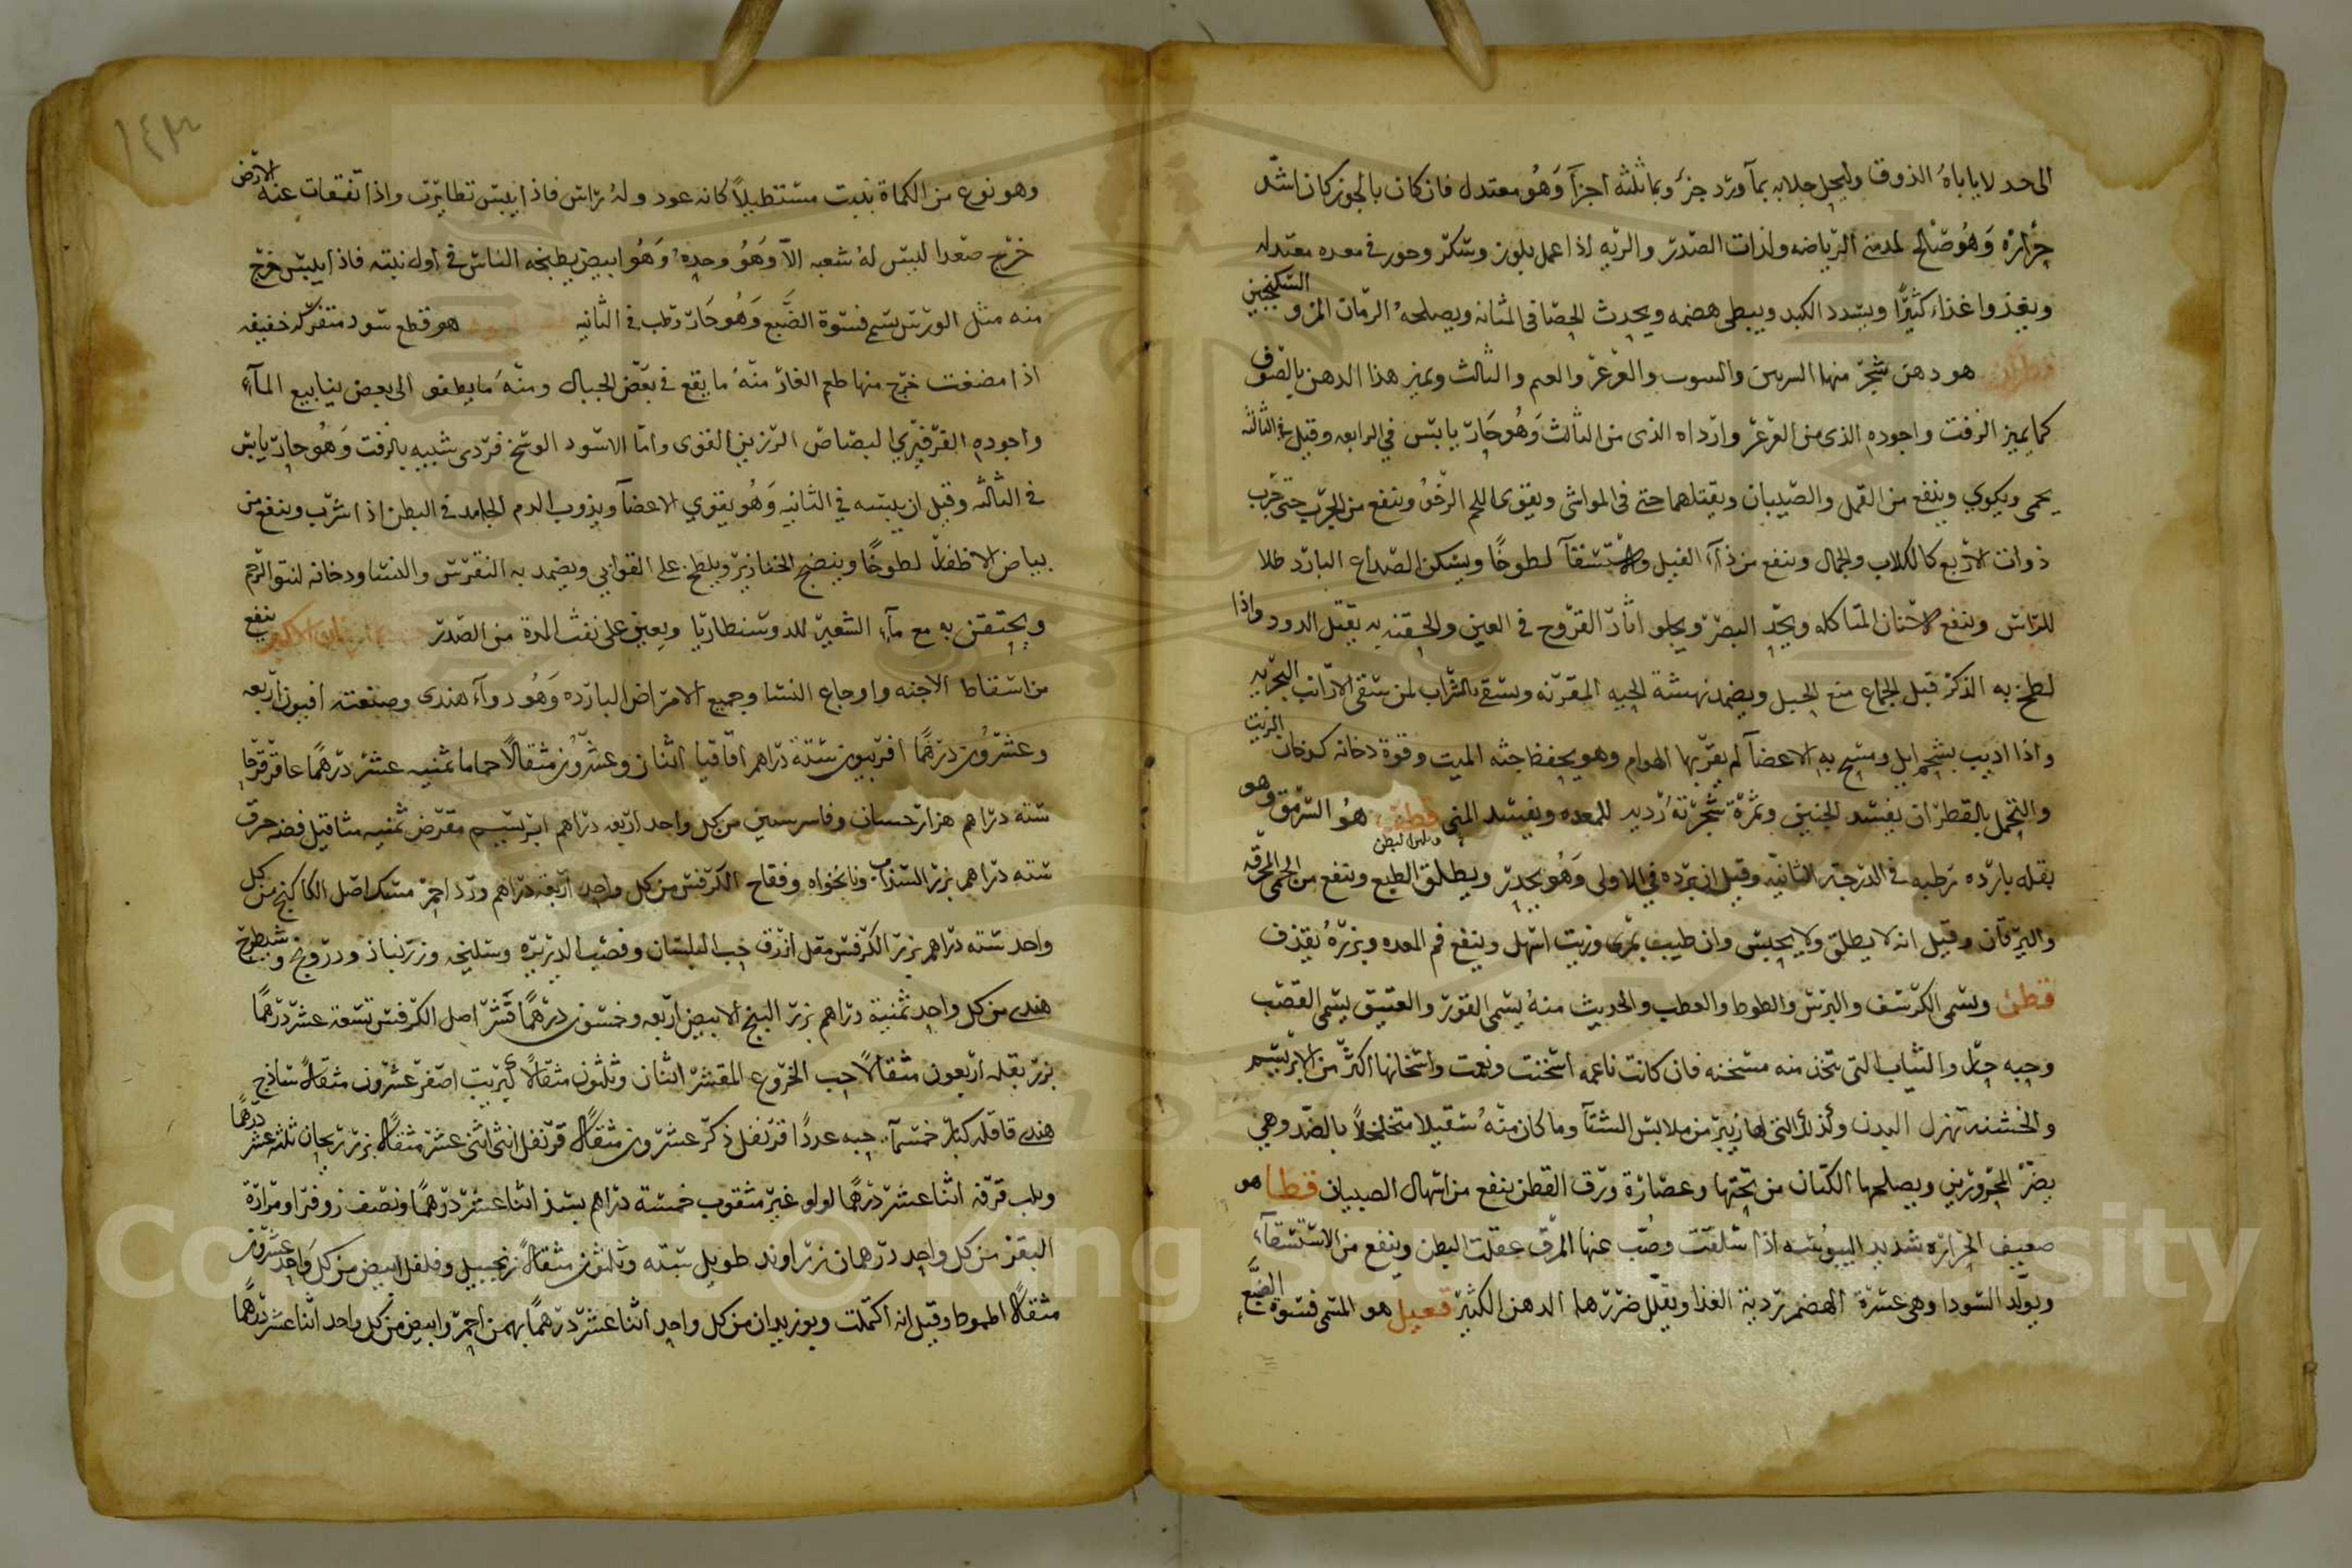 الى حد لا ياباه الذوق وليحل جلابه بمآ ورد جزؤ وبما ثلثه اجزآ وهو معتدل فان كان بالجوز كان اشد
حرارة وهو صالح لمدمني الرياضه ولذات الصدر والريه اذا عمل بلوز وسكر وحور في معده معتدله
ويغذوا غذاء كثيرًا ويسدد الكبد ويبطى هضمه ويحدث الحصا في المثانه ويصلحه الرمان المز والسكنجبين
قطران هو دهن شجر منها السربين والعرعر والثالث ويميز هذا الدهن بالصوف
كما يميز الزفت واجوده الذي من العرعر وارداه الذى من الثالث وهو حار يابس في الرابعه وقيل في الثالثه
يحمى ويكوي وينفع من القمل والصيبان ويقتلهما حتى في المواشى ويقوى اللحم الرخو وينفع من الجرب حتى جرب
ذوات الاربع كالكلاب والجمال وينفع من دآء الفيل والاستسقآ لطوخًا ويسكن الصداع البارد طلا
للراس وينفع الاسنان المتاكله ويحد البصر ويجلو اثار القروح في العين والحقنه به يقتل الدود واذا
لطخ به الذكر قبل الجماع منع الحبل ويضمد نهشة الحيه المقرنه ويسقى بالشراب لمن سقى الارانب البحريه
واذا اديب بشحم ايل ومسح به الاعضآ لم يقربها الهوام وهو يحفظ جثه الميت وقوة دخانه كدخان الزيت
والتحمل بالقطران يفسد الجنين وثمرة شجرته ردىه للمعده ويفسد المنى قطف هو السرمق وهو
بقله بارده رطبه في الدرجه الثانيه وقيل ان برده في الاولى وهو يحدر ويطلق الطبع وينفع من الحمى المحرقه
واليرقان وقيل انه لا يطلق ولا يحبس وان طيب بمرى وزيت اسهل وينفع فم المعده وبزره يقذف
قطن ويسمى الكرسف والبرس والطوط والعطب والحديث منه يسمى القور والعتيق يسمى القصب
وحبه حار والثياب التى تتخذ منه مسخنه فان كانت ناعمه اسخنت ونعمت واسخانها اكثر من الابريسم
والخشنه تهزل البدن وكذلك التى لها زيبر من ملابس الشتآ وما كان منه سقيلا متخلخلًا بالضد وهي
يضر المحرورين ويصلحها الكتان من تحتها وعصارة ورق القطن ينفع من اسهال الصبيان قطا هو
ضعيف الحراره شديد اليبوسه اذا سلقت وصب عنها المرق عقلت البطن وينفع من الاستسقآء
ويولد السودا وهى عسرة الهضم ردية الغذا ويقلل ضررها الدهن الكثير قعبل هو المسمى فسوة الضبع
١٤٣
وهو نوع من الكماة ينبت مستطيلًا كانه عود وله راس فاذا يبس تطايرت واذا تفقات عنه الارض
خرج صعدا ليس له شعبه الا وهو وحده وهو ابيض يطبخه الناس في اول نبته فاذا يبس خرج
منه مثل الورس يسم فسوة الضبع وهو حار رطب في الثانيه هو قطع سود متفركه خفيفه
اذا مضغت خرج منها طعم القار منه ما يقع في بعض الجبال ومنه ما يطفو الى بعض ينابيع المآء
واجوده الفرفيري البصاص الرزين القوى واما الاسود الوسخ فردى شبيه بالزفت وهو حار يابس
في الثالثه وقيل ان يبسه في الثانيه وهو يقوي الاعضآ ويذوب الدم الجامد في البطن اذا شرب وينفع من
بياض الاظفار لطوخًا وينضج الخنازير ويلطخ على القوابي ويضمد به النقرس والنسا ودخانه لنتو الرحم
ويحتقن به مع مآء الشعير للدوسنطاريا ويعين على نفث المدة من الصدر ينفع
من اسقاط الاجنه واوجاع النسا وجميع الامراض البارده وهو دوآء هندى وصنعته افيون اربعه
وعشرون درهمًا افربيون ستة دراهم اقاقيا اثنان وعشرون مثقالًا حماما ثمنيه عشر درهمًا عاقرقرحا
سته دراهم هزارجسان وفاسرستين من كل واحد اربعه دراهم ابريسم مقرض ثمنيه مثاقيل فضه حرق
سته دراهم بزر السذاب ونانخواه وفقاح الكرفس من كل واحد اربعة دراهم ورد احمر مسك اصل الكاكنج من كل
واحد سته دراهم بزر الكرفس مقل ازرق حب البلسان وقصب الذريره وسليخه وزرنباذ ودرونج وشيطرج
هندى من كل واحد ثمنية دراهم بزر البنج الابيض اربعه وخمسون درهمًا قشر اصل الكرفس تسعة عشر درهمًا
بزر بقله اربعون مثقالًا حب الخروع المقشر اثنان وثلثون مثقالًا كبريت اصفر عشرون مثقالًا ساذج
هندى قاقله كبار خمسمآئه حبه عددًا قرنفل ذكر عشرون مثقالًا قرنفل انثى اثنى عشر مثقالًا بزر ريحان ثلثه عشر درهمًا
ولب قرفه اثنا عشر درهمًا لولو غير مثقوب خمسة دراهم بسذ اثنا عشر درهمًا ونصف زوفرا ومرارة
البقر من كل واحد درهمان زراوند طويل سته وثلثون مثقالًا زنجبيل وفلفل ابيض من كل واحد عشرون
مثقالًا اطموط وقيل انه اكتملت وبوزيدان من كل واحد اثنا عشر درهمًا بهمن احمر وابيض من كل واحد اثنا عشر درهمًا
Copyright © King Saud University
1957